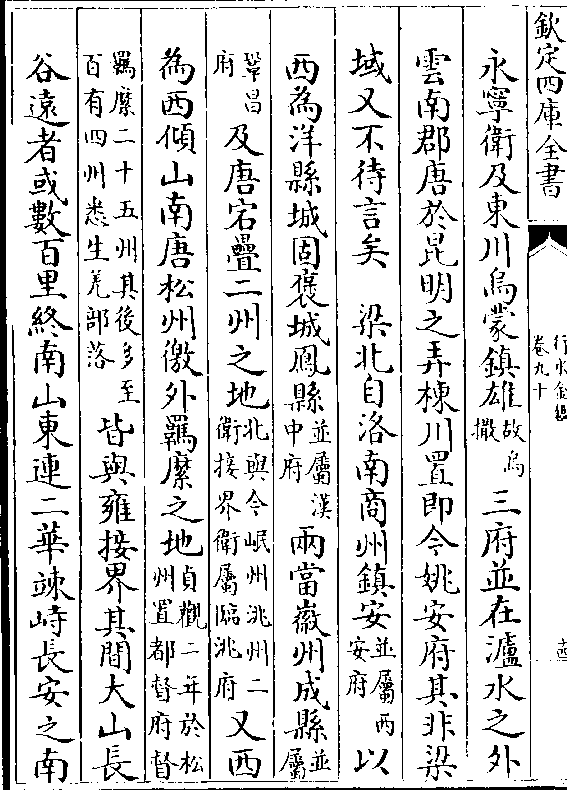 欽定四庫全書
行水金鑑
卷九十
永寧衛及東川烏蒙鎮雄故烏撒三府並在瀘水之外
雲南郡唐於昆明之弄棟川置即今姚安府其非梁
域又不待言矣　梁北自洛南商州鎮安並屬西安府以
西為洋縣城固褒城鳳縣並屬漢中府兩當徽州成縣並屬
鞏昌府及唐宕疊二州之地北與今岷州洮州二衛接界衛屬臨洮府又西
為西傾山南唐松州徼外羈縻之地貞觀二年於松州置都督府督
羈縻二十五州其後多至百有四州悉生羌部落皆與雍接界其間大山長
谷遠者或數百里終南山東連二華竦峙長安之南